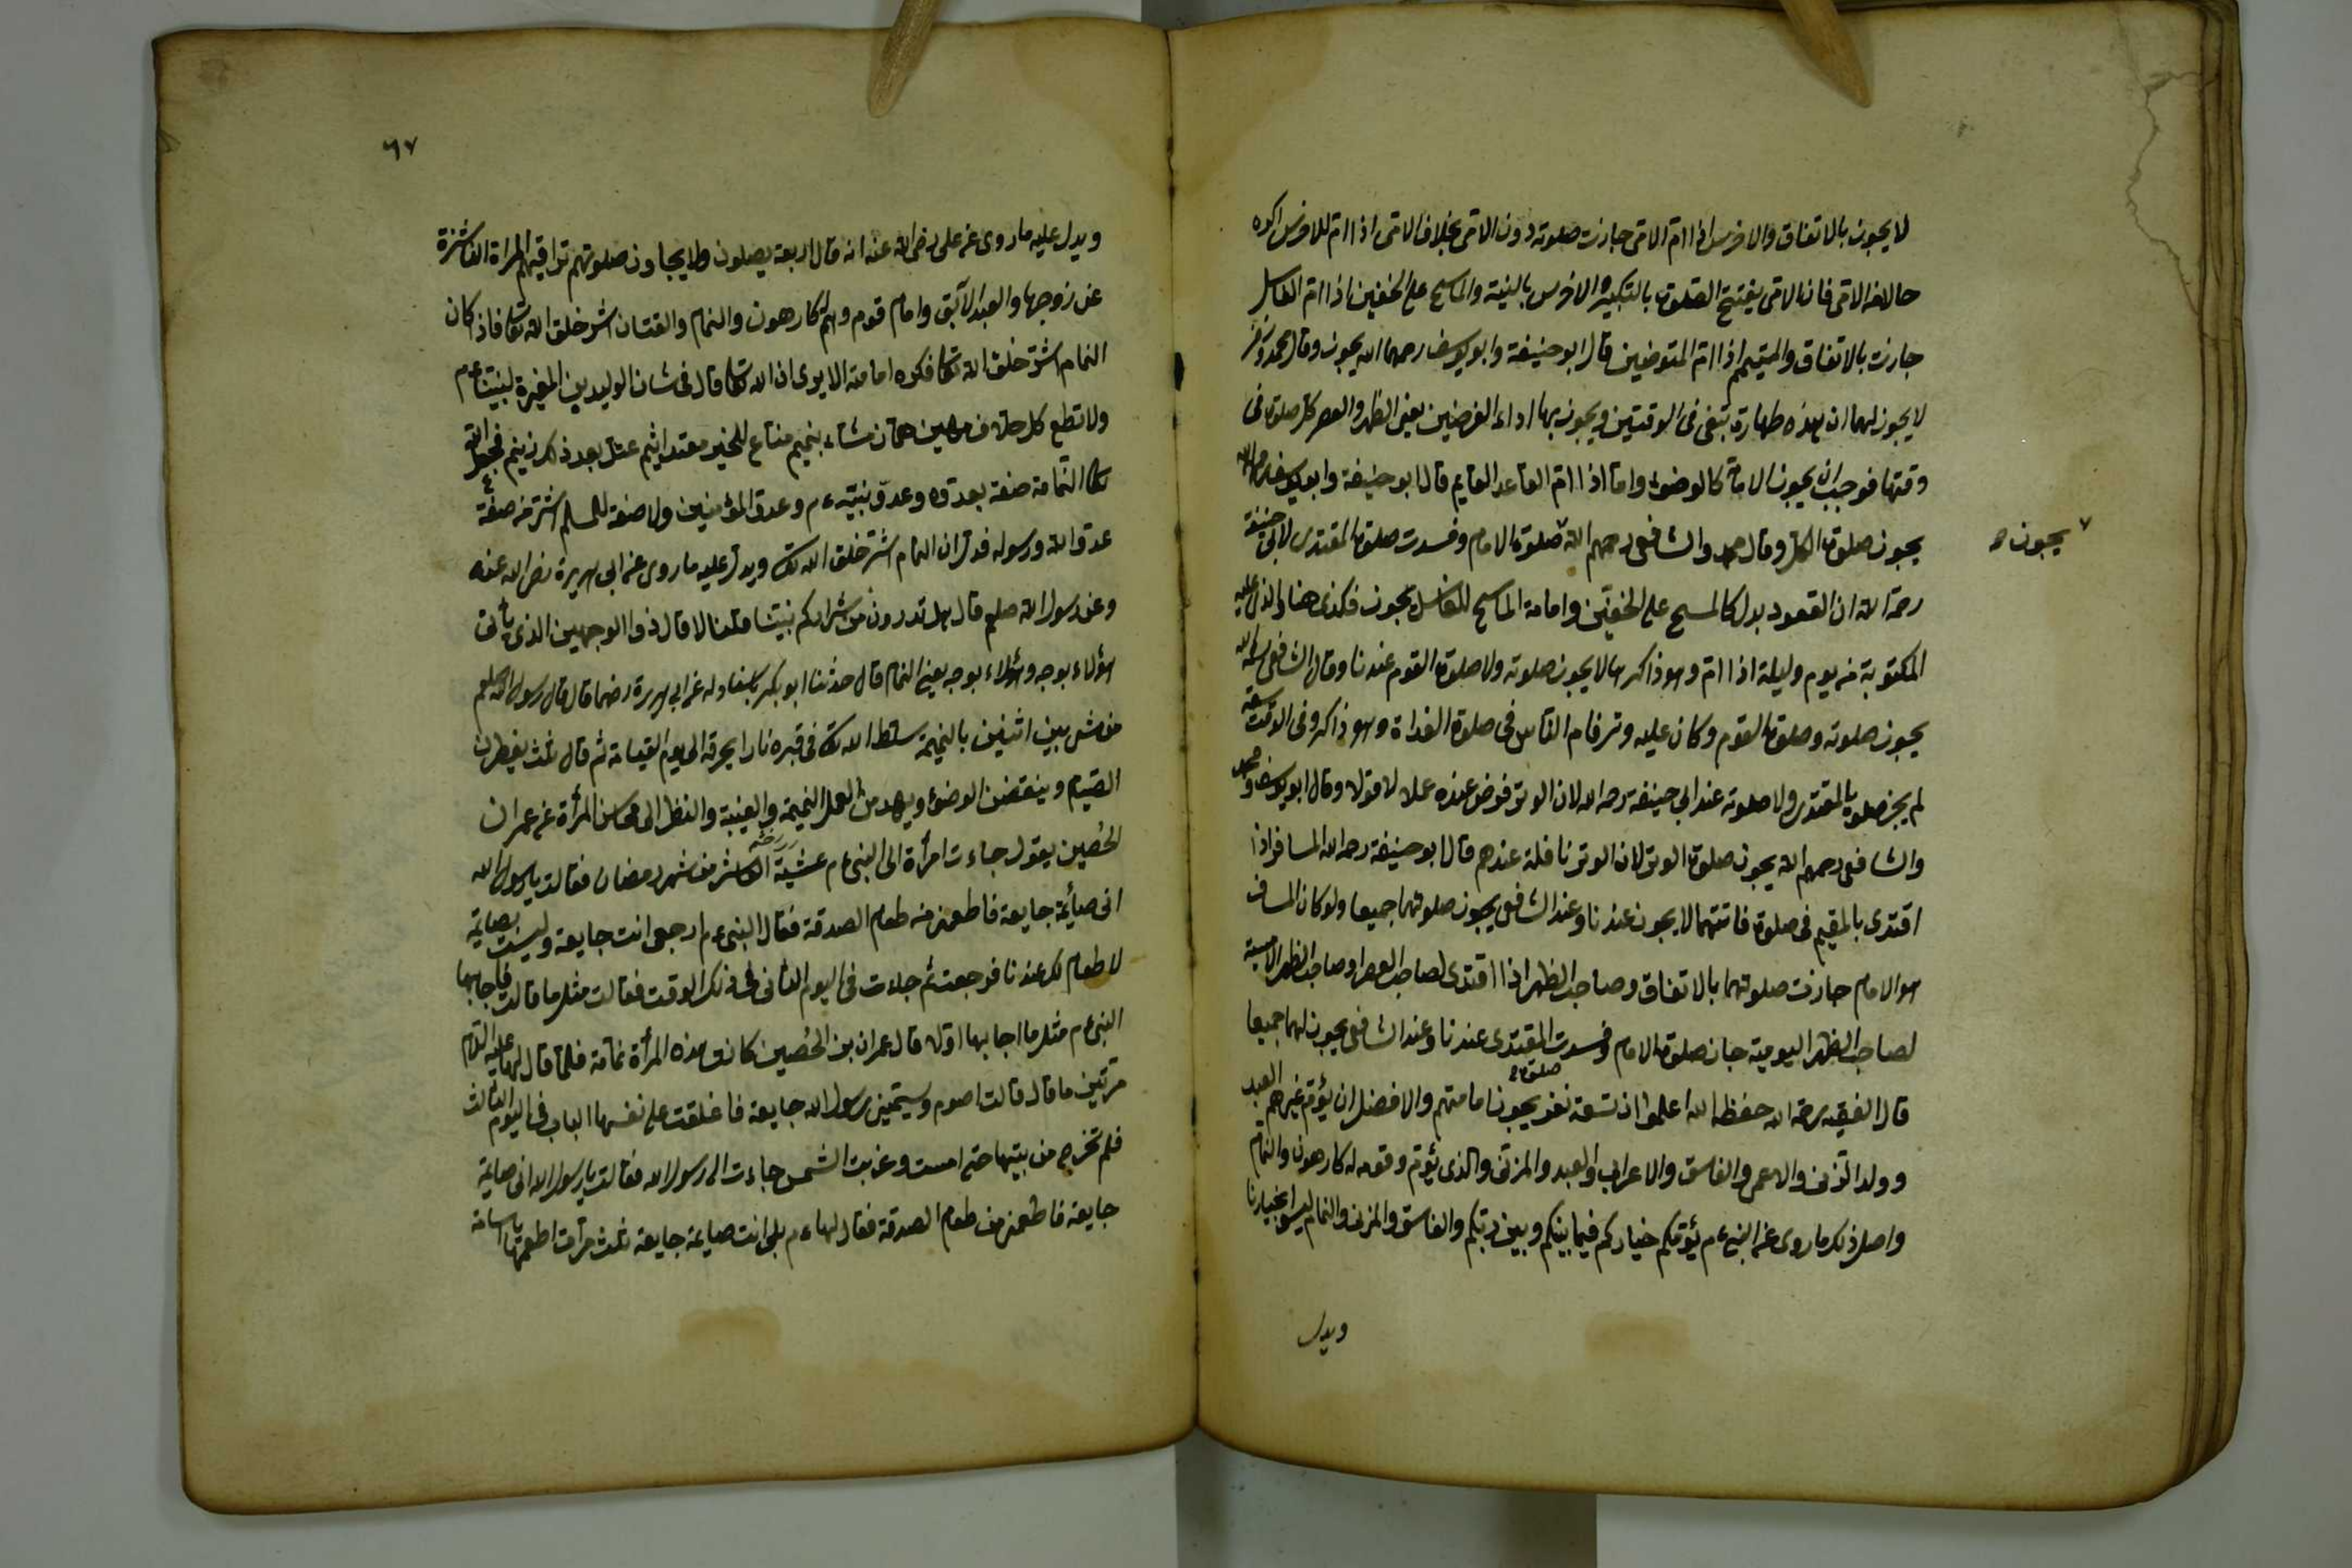 لا يجوز بالاتفاق والاخرس اذا ام الامى جازت صلوته دون الامى بخلاف الامى اذا ام للاخرس
حالا من الامى فان الامى يفتتح الصلوة بالتكبير والاخرس بالنية والماسح على الخفين اذا ام الغاسل
جازت بالاتفاق والمتيمم اذا ام المتوضئين قال ابو حنيفة وابو يوسف رحمهما الله يجوز وقال محمد وزفر
لا يجوز لهما ان هذه طهارة تبقى فى الوقتين ويجوز بها اداء الفرضين يعنى الظهر والعصر كل صلوة فى
وقتها فوجب ان يجوز الامامة كالوضوء واما اذا ام القاعد القايم قال ابو حنيفة وابو يوسف رحمهما الله
يجوز صلوة الكل وقال محمد والشافعى رحمهم الله صلوة الامام وفسدت صلوة المقتدى لابى حنيفة
يجوز
رحمة الله ان القعود بدل كالمسح على الخفين وامامة الماسح للغاسل يجوز فكذى هنا والذى عليه
المكتوبة من يوم وليلة اذا ام وهو ذاكرها لا يجوز صلوته ولا صلوة القوم عندنا وقال الشافعى رحمه الله
يجوز صلوته وصلوة القوم وكان عليه وتر فام الناس فى صلوة الغداة وهو ذاكر وفى الوقت سعة
لم يجز صلوة المقتدى ولا صلوته عند ابى حنيفة رحمه الله لان الوتر فرض عنده عملا لا قولا وقال ابو يوسف ومحمد
والشافعى رحمهم الله يجوز صلوة الوتر لان الوتر نافلة عندهم قال ابو حنيفة رحمه الله المسافر اذا
اقتدى بالمقيم فى صلوة فاتتهما لا يجوز عندنا وعند الشافعى يجوز صلوتهما جميعا ولو كان المسافر
هو الامام جازت صلوتهما بالاتفاق وصاحب الظهر اذا اقتدى لصاحب العصر او صاحب الظهر الامسية
لصاحب الظهر اليومية جاز صلوة الامام وفسدت المقتدى عندنا وعند الشافعى يجوز لهما جميعا
صلوة
قال الفقيه رحمة الله حفظه الله اعلموا ان تسعة نفر يجوز امامتهم والافضل ان يؤم غيرهم العبد
وولد الزنى والاعمى والفاسق والاعرابى والعبد والمزنى والذى يؤم وقومه له كارهون والنمام
واصل ذلك ما روى عن النبى ءم يؤمكم خياركم فيما بينكم وبين ربكم والفاسق والمزنى والنمام ليسوا بخيارنا
ويدل
٦٧
ويدل عليه ما روى عن على رضى الله عنه انه قال اربعة يصلون ولا يجاوز صلوتهم تراقيهم المراة الناشزة
عن زوجها والعبد الآبق وامام قوم وهم له كارهون والنمام والفتان اشر خلق الله تعالى فاذا كان
النمام اشر خلق الله تعالى فكره امامته الا يرى ان الله تعالى قال فى شان الوليد بن المغيرة لنبيه ءم
ولا تطع كل حلاف مهين هماز مشاء بنميم مناع للخير معتد اثيم عتل بعد ذلك زنيم فجعل الله
تعالى النمامة صفة بعدوه وعدو نبيه ءم وعدو المؤمنين ولا صفة للمسلم اشر من صفة
عدو الله ورسوله فدل ان النمام اشر خلق الله تعالى ويدل عليه ما روى عن ابى هريرة رضى الله عنه
وعن رسول الله صلعم قال هل تدرون من شراركم نبيتنا قلنا لا قال ذو الوجهين الذى يأتى
هؤلاء بوجه وهؤلاء بوجه يعنى النمام قال حدثنا ابو بكر باسناده عن ابى هريرة رضهما قال قال رسول الله صلعم
من مشى بين اثنين بالنميمة سلط الله تعالى فى قبره نارا يحرقه الى يوم القيامة ثم قال ثلث يفطرن
الصيام وينقضن الوضوء ويهدمن العمل النميمة والغيبة والنظر الى محاسن المرأة عن عمران
الحصين يقول جاءت امرأة الى النبى ءم عشية الاثنين من شهر رمضان فقالت يا رسول الله
انى صائمة جايعة فاطعمنى من طعام الصدقة فقال النبى ءم ارجعى انت جايعة وليست بصايمة
لا طعام لك عندنا فرجعت ثم جاءت فى اليوم الثانى فى ذلك الوقت فقالت مثل ما قالت فاجابها
النبى ءم مثل ما اجابها اولا قال عمران بن الحصين كانت هذه المرأة نمامة فلما قال لها عليه السلام
مرتين ما قال قالت اصوم وسيتمين رسول الله جايعة فاغلقت على نفسها الباب فى اليوم الثالث
فلم تخرج من بيتها حتى امست وغربت الشمس جاءت الى رسول الله فقالت يا رسول الله انى صايمة
جايعة فاطعمنى من طعام الصدقة فقال لها ءم بلى انت صايمة جايعة ثلث مرات اطعمها يا اسامة